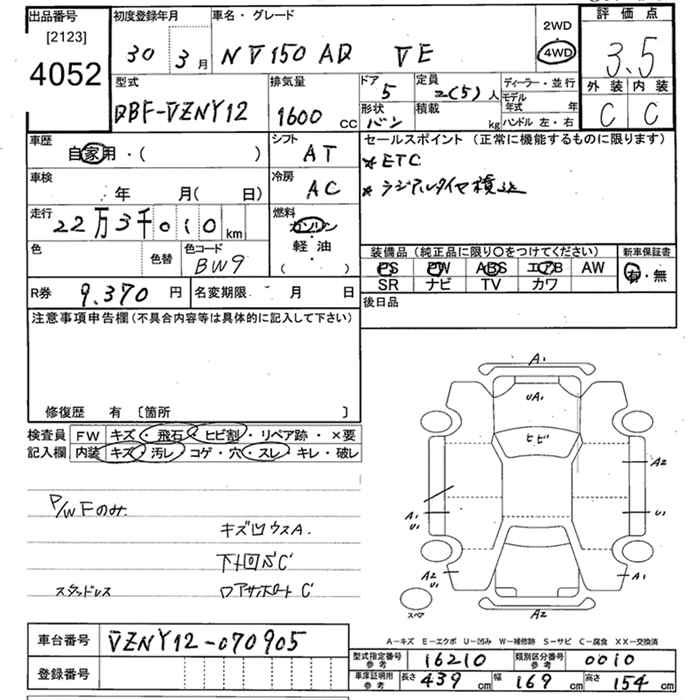 出品番号
[2123]
4052
初度登録年月
30 3月
車名・グレード
NV150 AD VE
2WD
4WD
評価点
3.5
外装 内装
C C
型式
DBF-VZNY12
排気量
1600 CC
ドア
5
定員
2(5)人
ディーラー・並行
モデル年式 年
形状
バン
積載
kg
ハンドル 左・右
車歴
自家用・( )
シフト
AT
セールスポイント (正常に機能するものに限ります)
*ETC
*ラジアルタイヤ積込
車検
年 月( 日)
冷房
AC
走行
22万3千010km
燃料
ガソリン
軽油
( )
色
色替
色コード
BW9
装備品(純正品に限り〇をつけてください)
新車保証書
PS PW ABS エアB AW
有・無
SR ナビ TV カワ
R券
9.370円
名変期限 月 日
後日品
注意事項申告欄(不具合内容等は具体的に記入して下さい)
修復歴 有 [箇所 ]
検査員
記入欄
FW キズ・飛石・ヒビ割・リペア跡・×要
内装 キズ・汚レ・コゲ・穴・スレ・キレ・破レ
P/WFのみ
キズ凹ウスA.
下回サビC
スタッドレス
コアサポートC
A1
UA1
ヒビ
A2
U1
A1
U1
A2
U1
A1
スペア
A2
車台番号
VZNY12-070905
登録番号
A−キズ E−エクボ U−凹み W−補修跡 S−サビ C−腐食 XX−交換済
型式指定番号
参考
16210
類別区分番号
参考
0010
車庫証明用
参考
長さ 439cm 幅 169cm 高さ 154cm